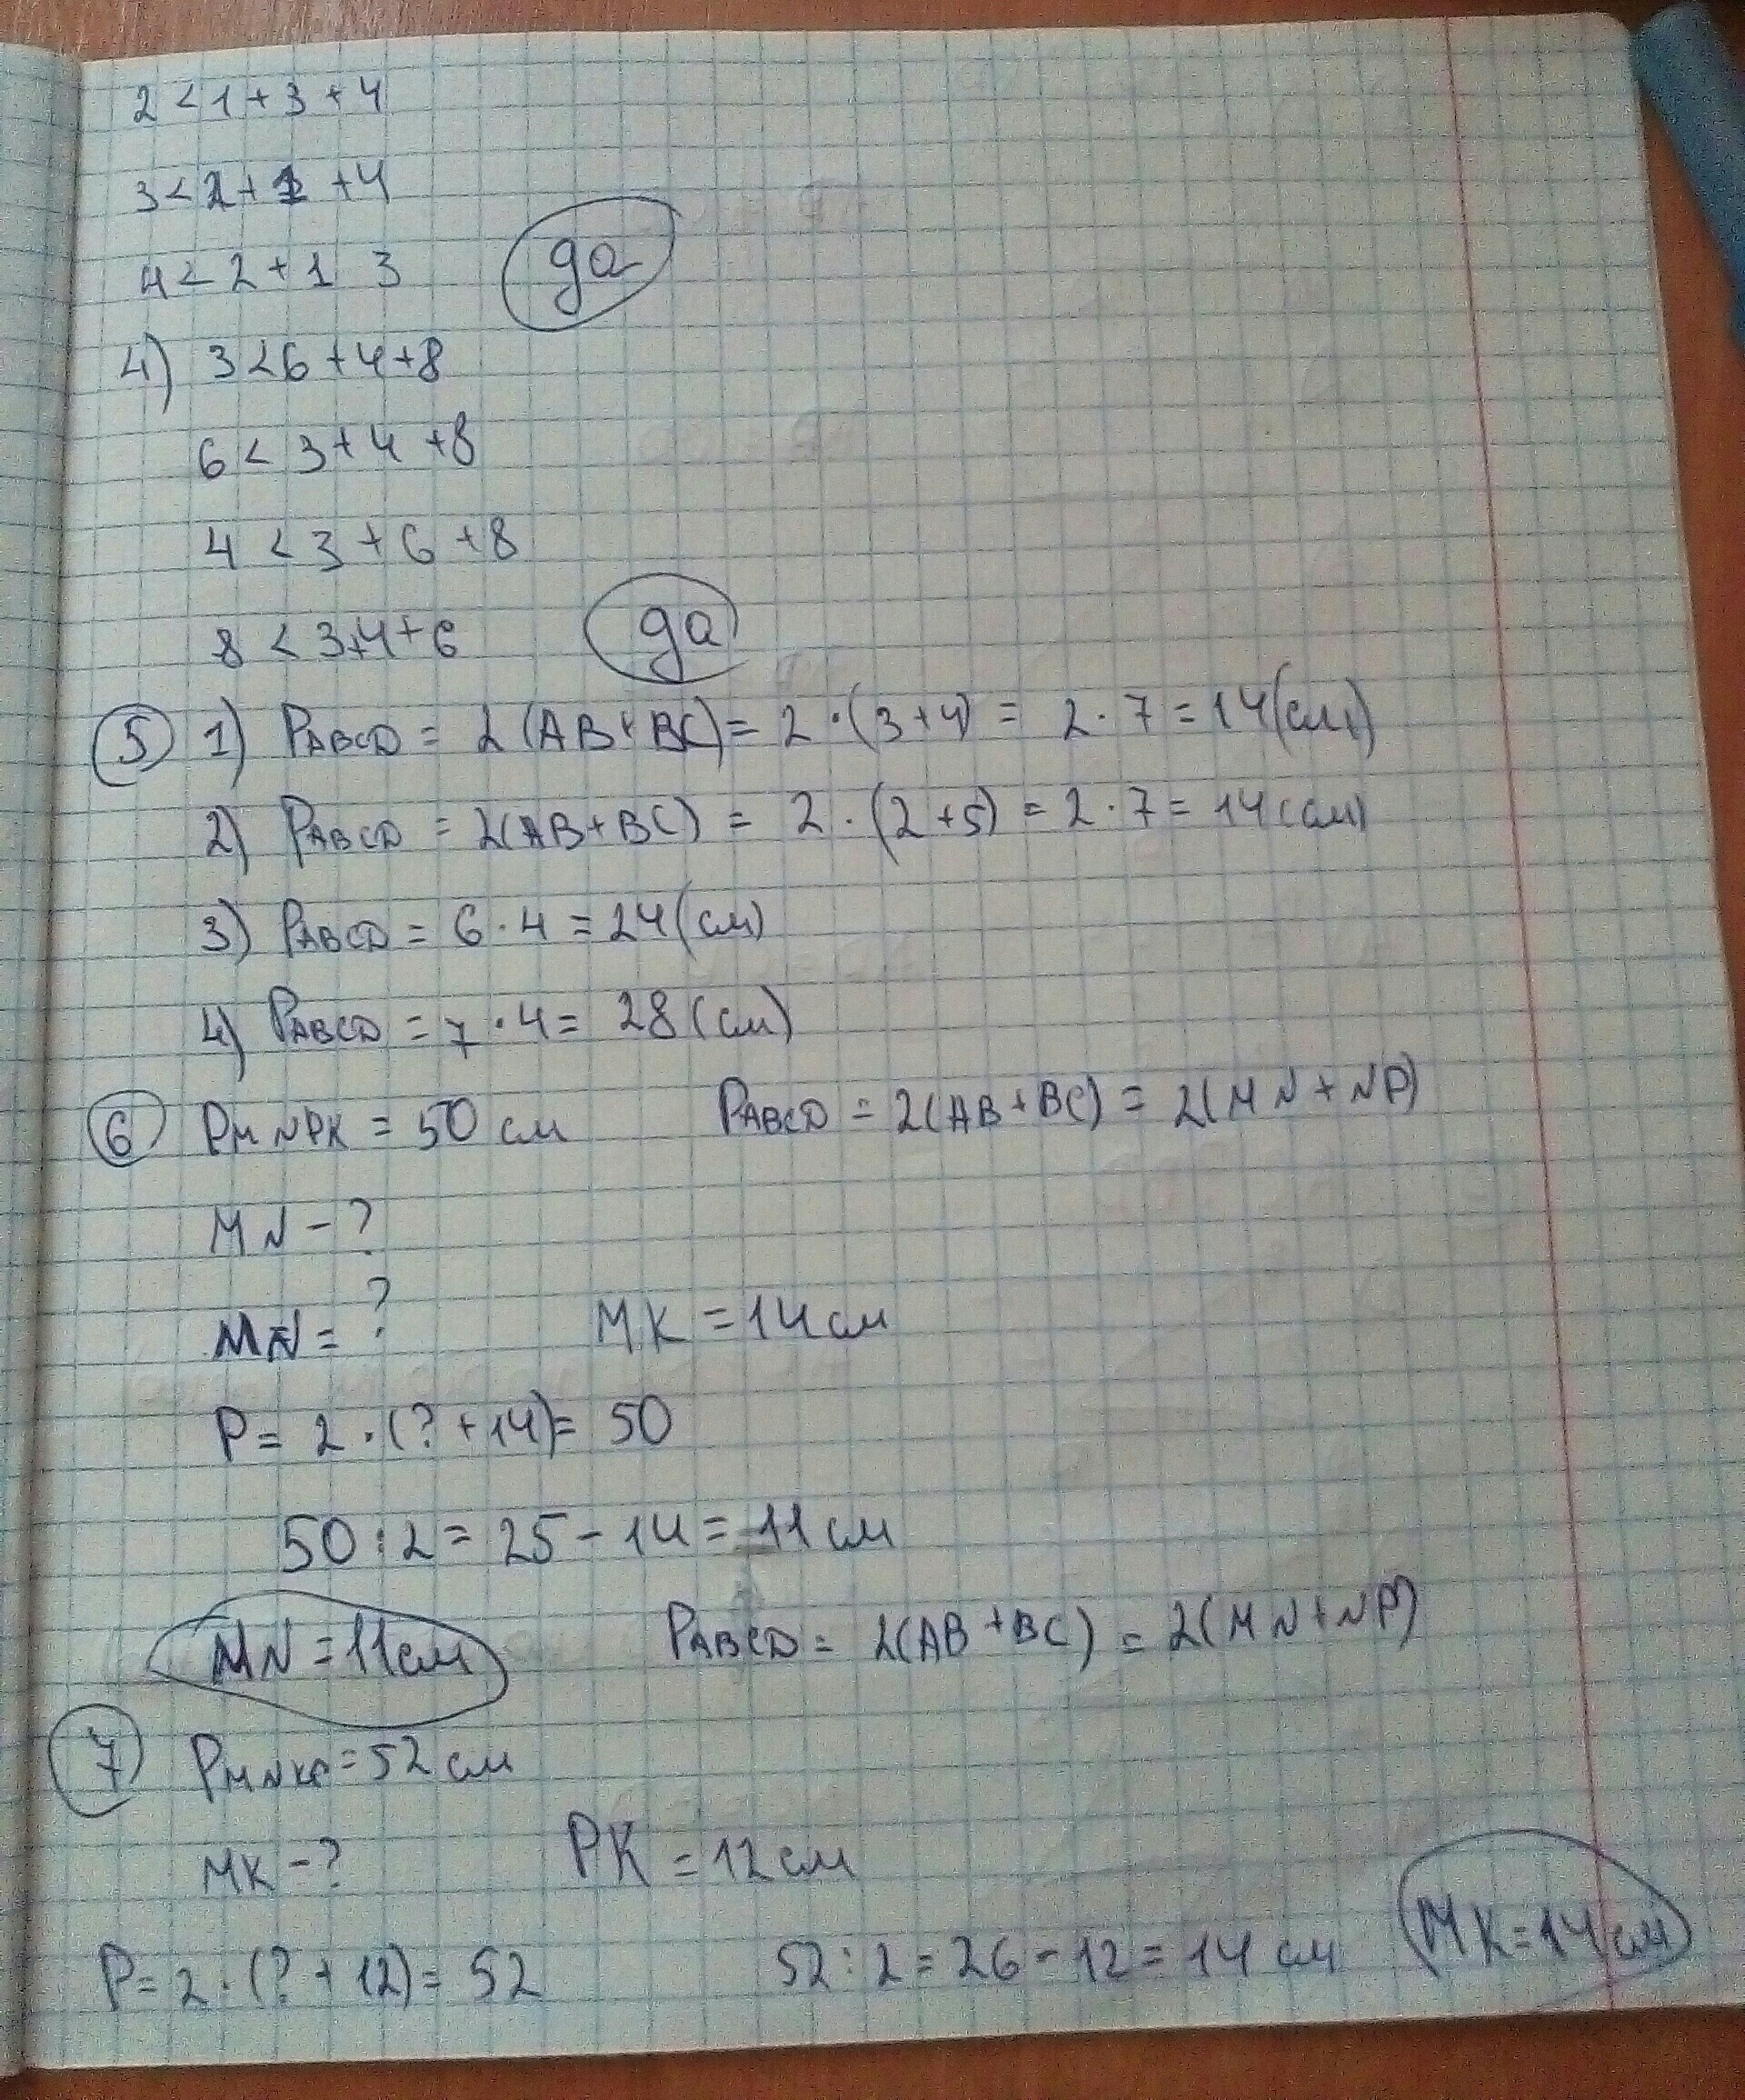 2 < 1 + 3 + 4
3 < 2 + 1 + 4
4 < 2 + 1 3 да
4) 3 < 6 + 4 + 8
6 < 3 + 4 + 8
4 < 3 + 6 + 8
8 < 3 + 4 + 6 да
5 1) PABCD = 2(AB+BC) = 2 · (3+4) = 2 · 7 = 14(см)
2) PABCD = 2(AB+BC) = 2 · (2+5) = 2 · 7 = 14(см)
3) PABCD = 6 · 4 = 24(см)
4) PABCD = 7 · 4 = 28(см)
6 PMNPK = 50 см PABCD = 2(AB+BC) = 2(MN+NP)
MN - ?
MN = ? MK = 14 см
P = 2 · (? + 14) = 50
50 : 2 = 25 - 14 = 11 см
MN = 11 см PABCD = 2(AB+BC) = 2(MN+NP)
7 PMNKP = 52 см
MK - ? PK = 12 см
P = 2 · (? + 12) = 52 52 : 2 = 26 - 12 = 14 см MK = 14 см